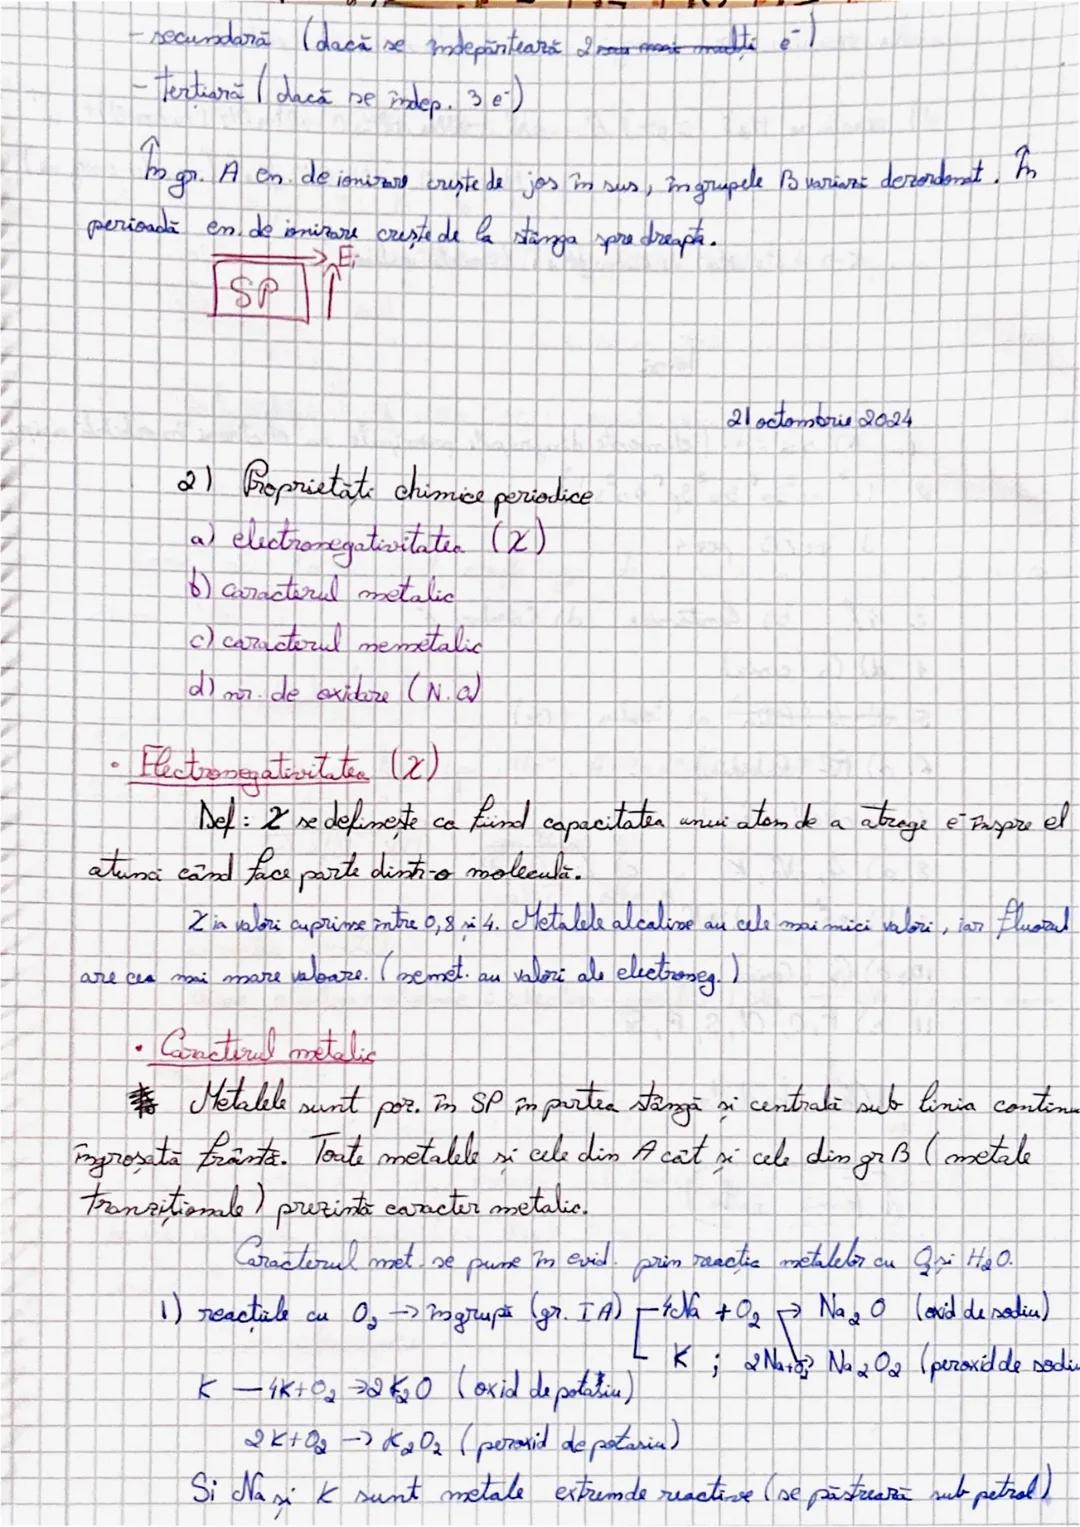 - secundară (dacă se îndepărtează 2 sau mai mulți e⁻)
- terțiară (dacă se îndep. 3 e⁻)
În gr. A en. de ionizare crește de jos în sus, în grupele B variază dezordonat. În
perioadă en. de ionizare crește de la stânga spre dreapta.
Ei
SP
21 octombrie 2024
2) Proprietăți chimice periodice
a) electronegativitatea (χ)
b) caracterul metalic
c) caracterul nemetalic
d) nr. de oxidare (N.O)
• Electronegativitatea (χ)
Def: χ se definește ca fiind capacitatea unui atom de a atrage e⁻ înspre el
atunci când face parte dintr-o moleculă.
χ ia valori cuprinse între 0,8 și 4. Metalele alcaline au cele mai mici valori, iar fluorul
are cea mai mare valoare. (nemet. au valori ale electroneg.)
• Caracterul metalic
Metalele sunt poz. în SP în partea stângă și centrală sub linia continu
îngroșată frântă. Toate metalele și cele din A cât și cele din gr B (metale
tranziționale) prezintă caracter metalic.
Caracterul met. se pune în evid. prin reacția metalelor cu O₂ și H₂O.
1) reacțiile cu O₂ → în grupă (gr. IA) 4Na + O₂ → Na₂O (oxid de sodiu)
K ; 2Na+O₂ → Na₂O₂ (peroxid de sodiu
K — 4K+O₂ → 2K₂O (oxid de potasiu)
2K+O₂ → K₂O₂ (peroxid de potasiu)
Si Na și K sunt metale extrem de reactive (se păstrează sub petrol)